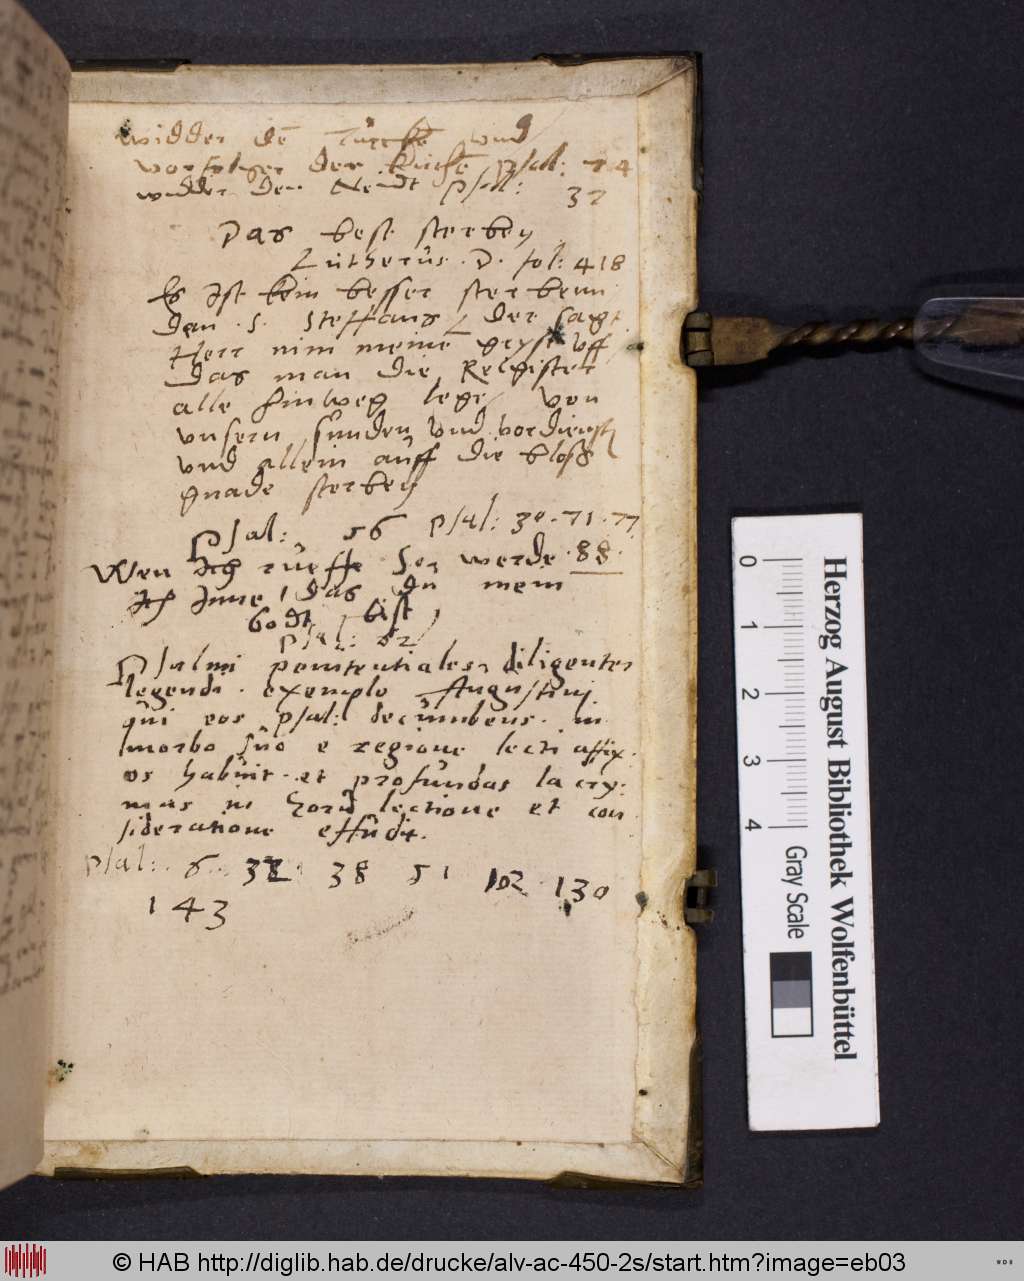 widder dē Türckē vnd
vorfolger der kirchē psal: 74
widder den Neidt Psal: 37
Das best sterben
Lutherus. D. fol: 418
Es Ist kein besser sterbenn
dan . S. Steffans / der sagt
Herr nim meine geyst vff
Das man die Relgister
alle hinweg lege / von
vnsern sunden vnd vordienst
vnd allein auff die bloss
gnade sterben
Psal: 56 Psal: 30. 71. 77
88.
Wen Ich rueffe So werde
Ich Inne / das du mein
Godt bist /
psal: 62
Psalmi penitentiales diligenter
legendi. exemplo Augustini
qui eos psal: decumbens. in
morbo suo e regione lecti affix.
os habuit. et profundas lacry:
mas in horu lectione et con
sideratione effudit.
psal: 6. 32 38 51 102 130
143
Herzog August Bibliothek Wolfenbüttel
0 1 2 3 4 Gray Scale
© HAB http://diglib.hab.de/drucke/alv-ac-450-2s/start.htm?image=eb03